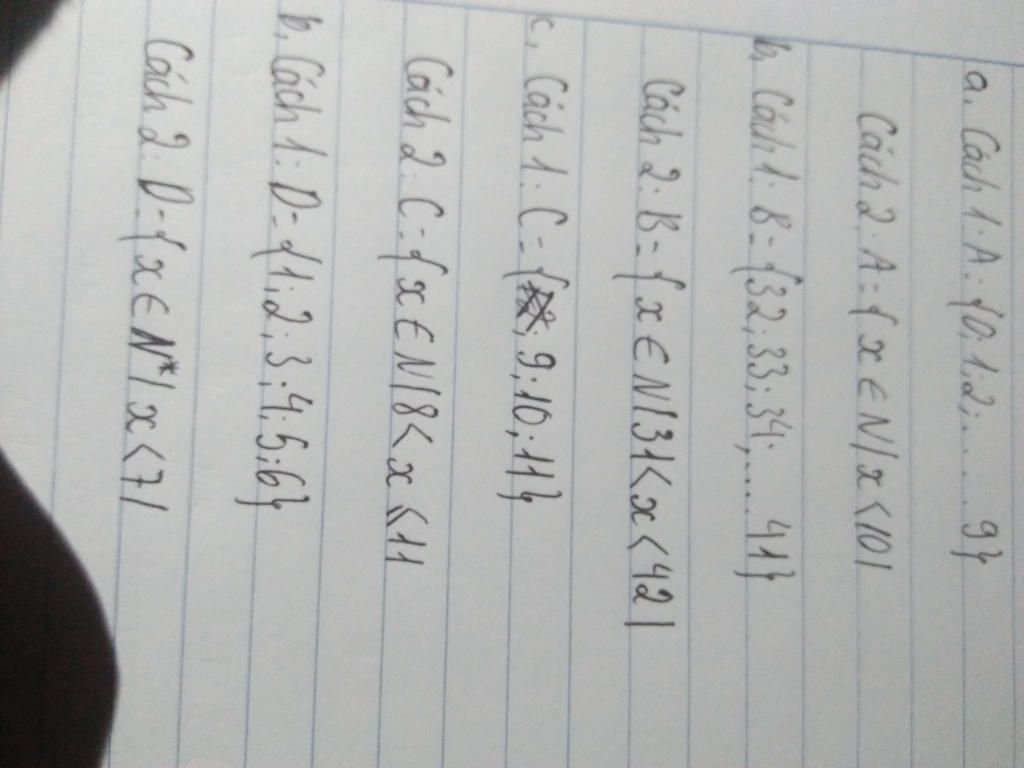 a. Cách 1: A = {0; 1; 2; .... 9}
Cách 2: A = { x ∈ N | x < 10 |
b, Cách 1: B = {32; 33; 34; .... 41}
Cách 2: B = { x ∈ N | 31 < x < 42 |
c, Cách 1: C = { ; 9; 10; 11}
Cách 2: C = { x ∈ N | 8 < x ≤ 11
b, Cách 1: D = {1; 2; 3; 4; 5; 6}
Cách 2: D = { x ∈ N* | x < 7 |